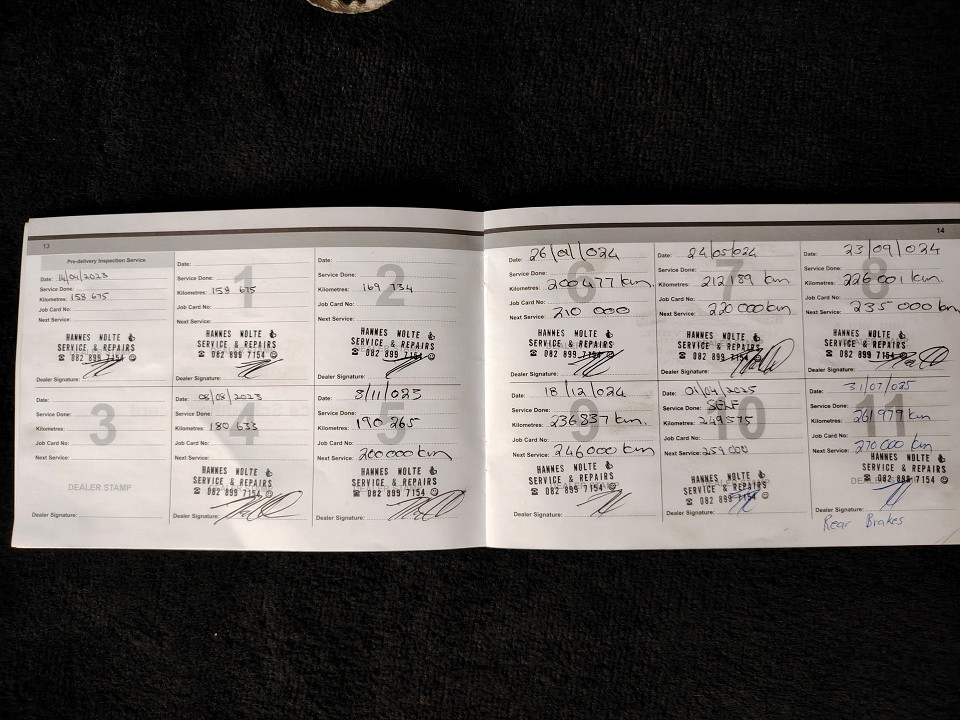 13
Pre-delivery Inspection Service
Date: 14/04/2023
Service Done:
Kilometres: 158 675
Job Card No:
Next Service:
HANNES NOLTE
SERVICE & REPAIRS
☎ 082 899 7154
Dealer Signature:
1
Date:
Service Done:
Kilometres: 158 675
Job Card No:
Next Service:
HANNES NOLTE
SERVICE & REPAIRS
☎ 082 899 7154
Dealer Signature:
2
Date:
Service Done:
Kilometres: 169 734
Job Card No:
Next Service:
HANNES NOLTE
SERVICE & REPAIRS
☎ 082 899 7154
Dealer Signature:
3
Date:
Service Done:
Kilometres:
Job Card No:
Next Service:
DEALER STAMP
Dealer Signature:
4
Date: 08/08/2023
Service Done:
Kilometres: 180 633
Job Card No:
Next Service:
HANNES NOLTE
SERVICE & REPAIRS
☎ 082 899 7154
Dealer Signature:
5
Date: 8/11/023
Service Done:
Kilometres: 190 265
Job Card No:
Next Service: 200000km
HANNES NOLTE
SERVICE & REPAIRS
☎ 082 899 7154
Dealer Signature:
14
6
Date: 26/01/024
Service Done:
Kilometres: 200477 km.
Job Card No:
Next Service: 210 000
HANNES NOLTE
SERVICE & REPAIRS
☎ 082 899 7154
Dealer Signature:
Date: 24/05/024
Service Done:
Kilometres: 212189 km
Job Card No:
Next Service: 220 000km
HANNES NOLTE
SERVICE & REPAIRS
☎ 082 899 7154
Dealer Signature:
8
Date: 23/09/024
Service Done:
Kilometres: 226 001 km.
Job Card No:
Next Service: 235 000 km
HANNES NOLTE
SERVICE & REPAIRS
☎ 082 899 7154
Dealer Signature:
9
Date: 18/12/024
Service Done:
Kilometres: 236837 km.
Job Card No:
Next Service: 246000 km
HANNES NOLTE
SERVICE & REPAIRS
☎ 082 899 7154
Dealer Signature:
10
Date: 01/04/2025
Service Done: SELF
Kilometres: 249575
Job Card No:
Next Service: 259 000
HANNES NOLTE
SERVICE & REPAIRS
☎ 082 899 7154
Dealer Signature:
11
Date: 31/07/025
Service Done:
Kilometres: 261979 km
Job Card No:
Next Service: 270 000 km
HANNES NOLTE
SERVICE & REPAIRS
☎ 082 899 7154
Dealer Signature:
Rear Brakes